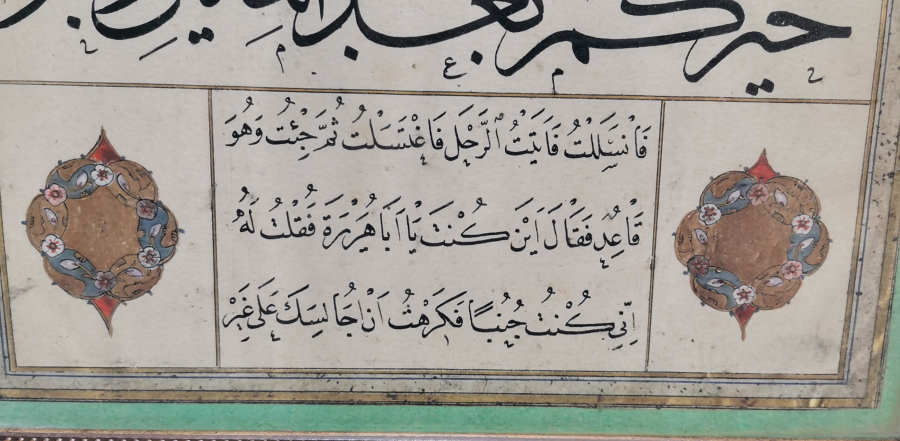 خيركم بعد المائتين
فَانْسَلَلْتُ فَاَتَيْتُ الرَّحْلَ فَاغْتَسَلْتُ ثُمَّ جِئْتُ وَهُوَ
قَاعِدٌ فَقَالَ اَيْنَ كُنْتَ يَا اَبَا هُرَيْرَةَ فَقُلْتُ لَهُ
اِنِّي كُنْتُ جُنُبًا فَكَرِهْتُ اَنْ اُجَالِسَكَ عَلَى غَيْرِ